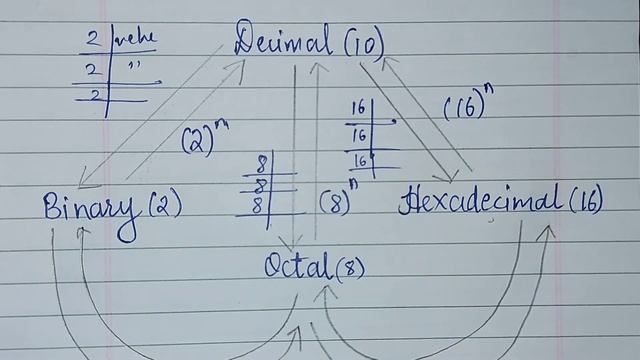 Decimal (10)
2
2 "
2
(2)ⁿ
16
16
16
(16)ⁿ
8
8
8
(8)ⁿ
Binary (2)
Hexadecimal (16)
Octal (8)